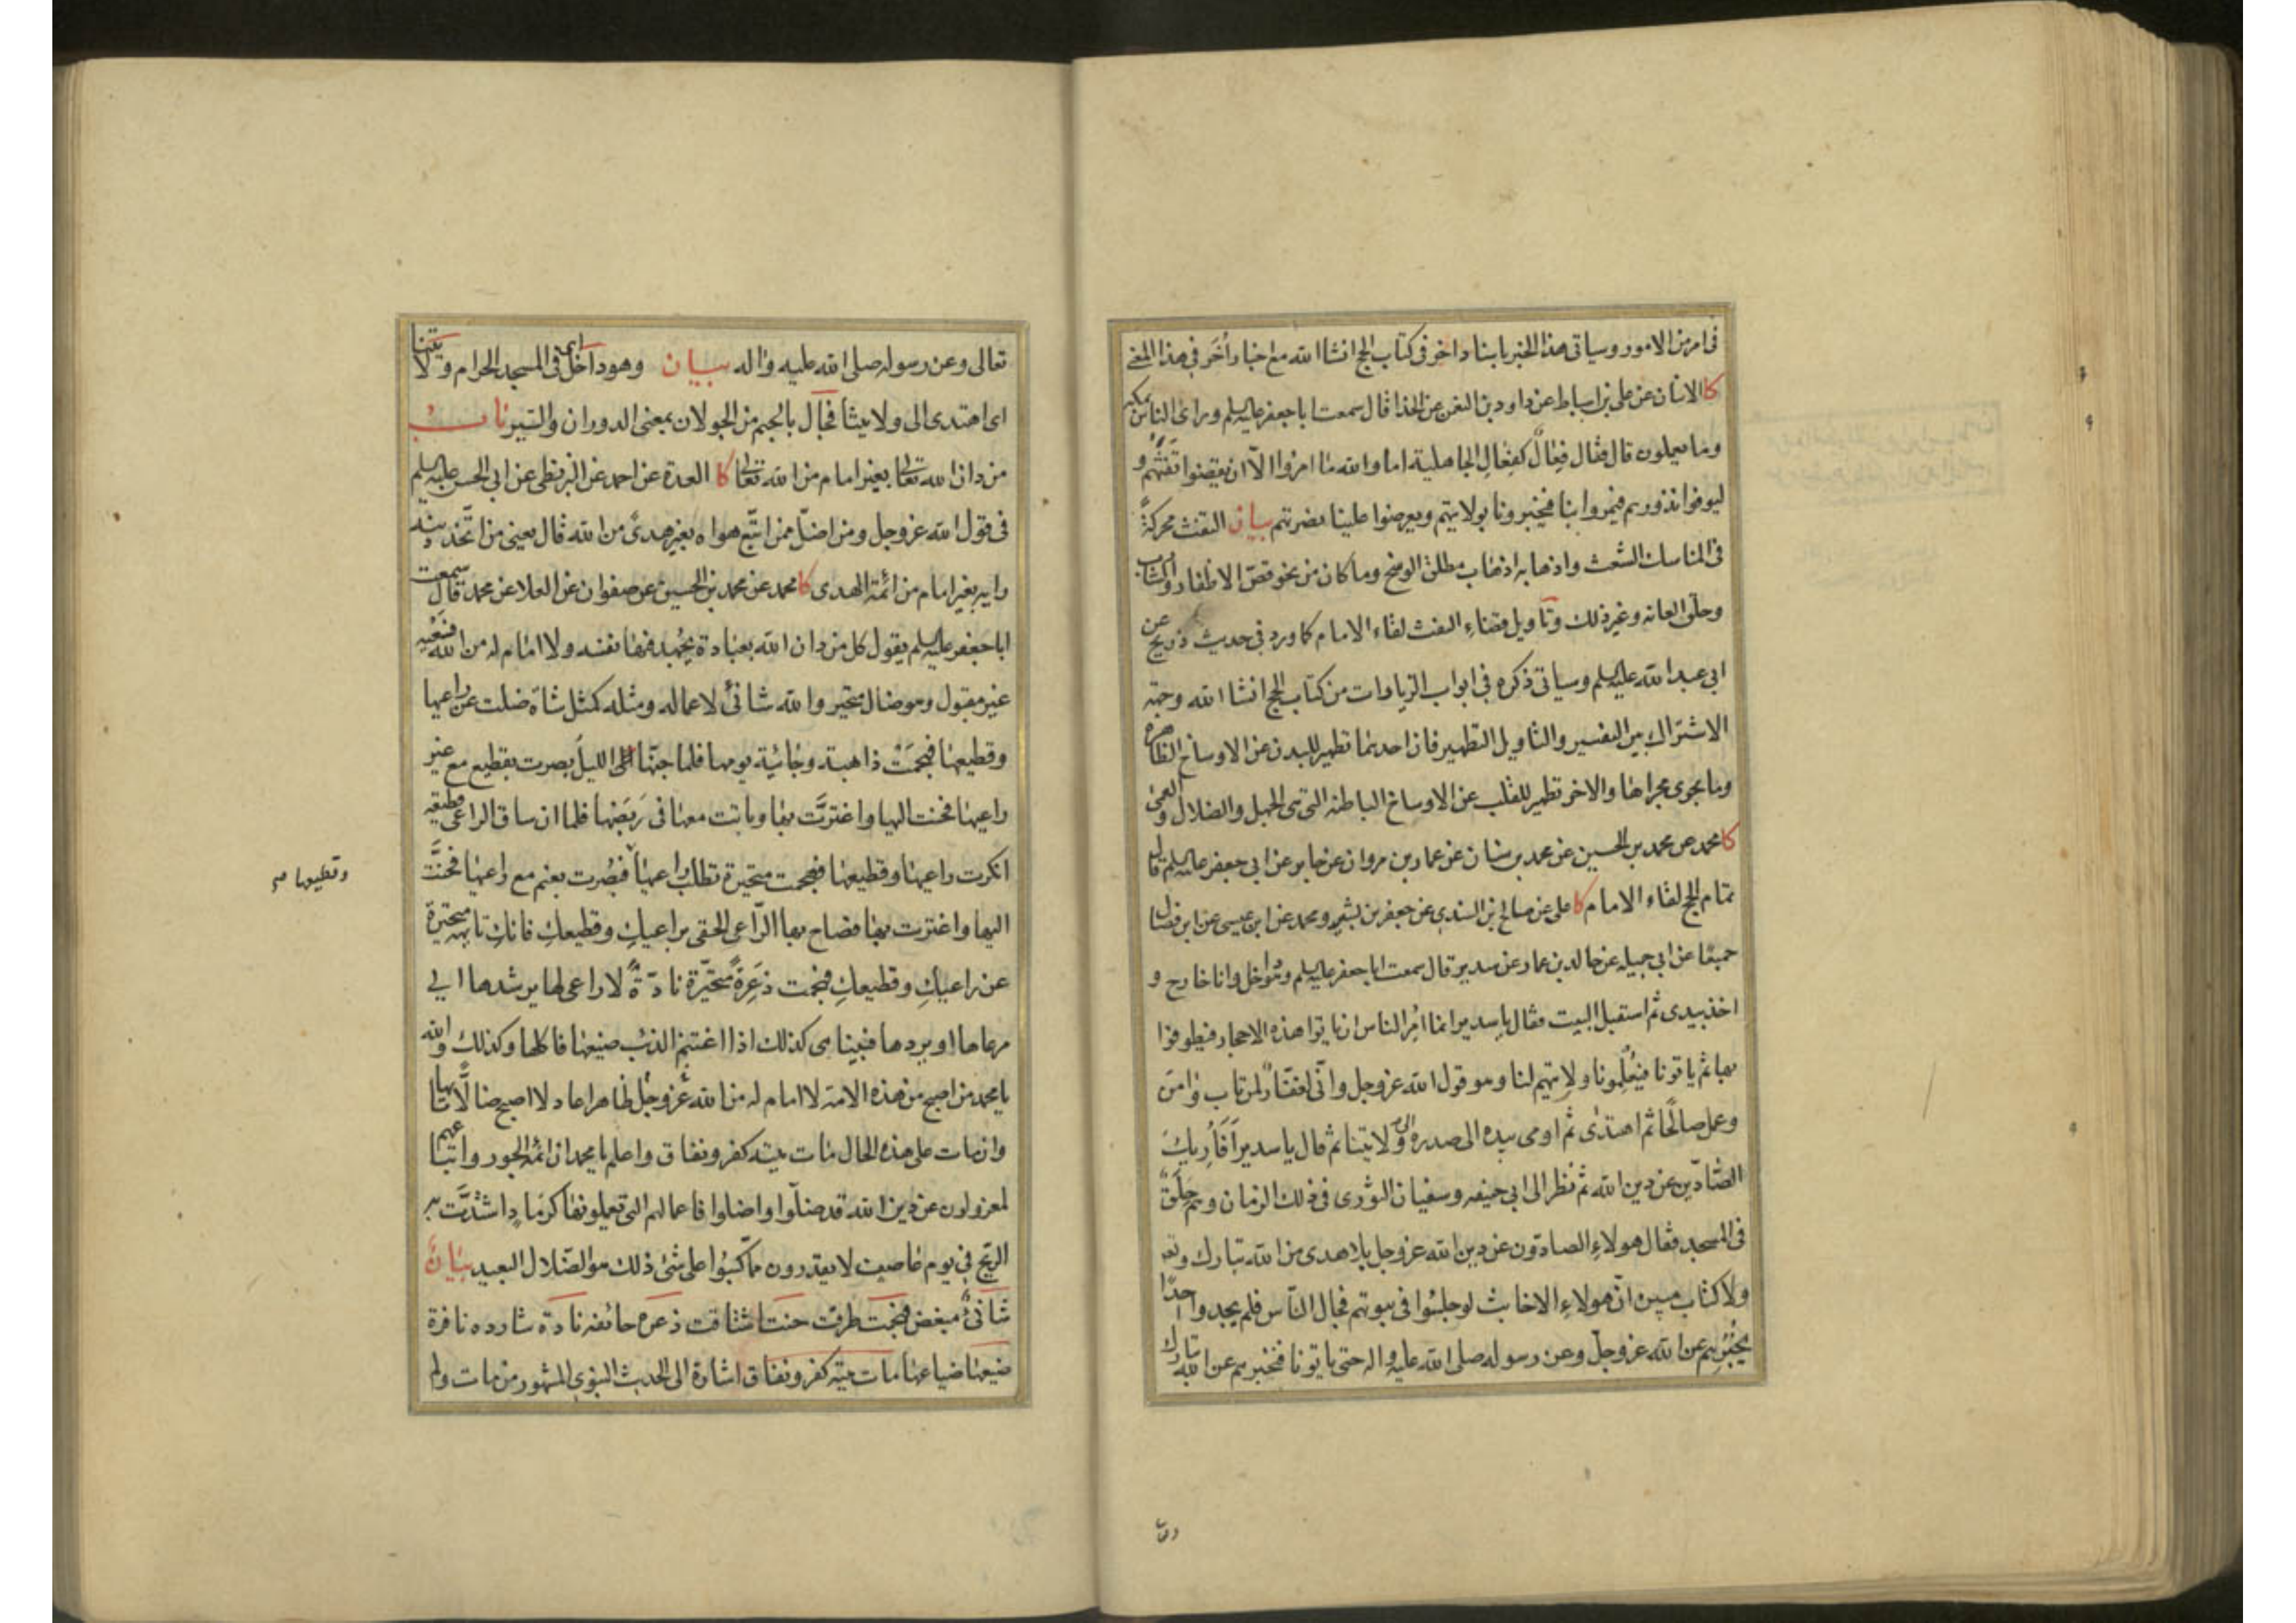 فی امر من الامور وسیاتی هذا الخبر باسناد اخر فی کتاب الحج انشاا الله مع اخبار أُخَر فی هذا المعنی
کا الاثنان عن علی بن اسباط عن داود بن النعمن عن الحذا قال سمعت ابا جعفر علیه السلم ورای الناس بمکة
وما یعملون قال فقال فِعالٌ کفِعَالِ الجاهلیة اما والله ما امروا الّا ان یقضوا تَفَثهُم و
لیوفوا نذورهم فیمروا بنا فیخبرونا بولایتهم ویعرضوا علینا نصرتهم بیان التفث محرکةً
فی المناسک الشعث واذهابه اذهاب مطلق الوسخ وما کان من نحو قصّ الاظفار والشارب
وحلق العانه وغیر ذلک وتاویل قضاءِ التفث لقاء الامام کما ورد فی حدیث ذریح عن
ابی عبد الله علیه السلم وسیاتی ذکره فی ابواب الزیارات من کتاب الحج انشاا الله وجهة
الاشتراک بین التفسیر والتاویل التطهیر فان احدیهما تطهیر للبدن عن الاوساخ الظاهرة
وما یجری مجراها والاخر تطهیر للقلب عن الاوساخ الباطنه التی هی الجهل والضلال والعمی
کا محمد عن محمد بن الحسین عن محمد بن سنان عن عمار بن مروان عن جابر عن ابی جعفر علیه السلم قال
تمام الحج لقاء الامام کا علی عن صالح بن السندی عن جعفر بن بشیر ومحمد عن ابن عیسی عن ابن فضال
جمیعًا عن ابی جمیله عن خالد بن عمار عن سدیر قال سمعت ابا جعفر علیه السلم وهُو داخل وانا خارج و
اخذ بیدی ثم استقبل البیت فقال یا سدیر انما اُمِر الناس ان یاتوا هذه الاحجار فیطوفوا
بها ثم یاتونا فیُعْلِمونا ولایتهم لنا وهو قول الله عزوجل وانّی لغفّارٌ لمن تاب وامن
وعمل صالحًا ثم اهتدی ثم اومی بیده الی صدره الی ولایتنا ثم قال یا سدیر اَفَأُرِیکَ
الصّادّین عن دین الله ثم نظر الی ابی حنیفه وسفیان الثوری فی ذلک الزمان وهم حِلَقٌ
فی المسجد فقال هولاءِ الصادّون عن دین الله عزوجل بلا هدی من الله تبارک وتع
ولا کتاب مبین انّ هولاءِ الاخابث لو جلسُوا فی بیوتهم فجال النّاس فلم یجدوا احدًا
یُخْبِرُهم عن الله عزوجلّ وعن رسوله صلی الله علیه واله حتی یاتونا فنخبرهم عن الله تبارک
تعالی وعن رسوله صلی الله علیه واله بیان وهو داخل ای فی المسجد الحرام ولایتنا
ای اهتدی الی ولایتنا فجال بالجیم من الجولان بمعنی الدوران والسّیر باب
من دان لله تعالی بغیر امام من الله تعالی کا العدة عن احمد عن البزنطی عن ابی الحسن علیه السلم
فی قول الله عزوجل ومن اضلّ ممن اتّبع هواه بغیر هدیً من الله قال یعنی من اتّخذ دینه
رایه بغیر امام من ائمّة الهدی کا محمد عن محمد بن الحسین عن صفوان عن العلا عن محمد قال سمعت
ابا جعفر علیه السلم یقول کل من دان الله بعبادة یُجْهِد فیها نفسه ولا امام له من الله فسَعْیُه
غیر مقبول وهو ضال متحیر والله شانئٌ لاعماله ومثله کمثل شاة ضلت عن راعیها
وقطیعها فهَجَمَتْ ذاهبة وجائیة یومها فلما جنّها اللیل بصرت بقطیع مع غیر
راعیها فحنت الیها واغترّت بها وباتت معها فی رَبَضها فلما ان ساق الراعی قطیعه
انکرت راعیها وقطیعها فهجمت متحیرة تطلب راعیها فبصُرت بغنم مع راعیها فحنَّت
وقطیعها صح
الیها واغترت بها فصاح بها الرّاعی الحقی براعیکِ وقطیعکِ فانکِ تایهه متحیرة
عن راعیکِ وقطیعکِ فهجمت ذَعِرَةً متحیّرة نادّةً لا راعی لها یرشدها الی
مرعاها او یردها فبینا هی کذلک اذا اغتنم الذئب ضیعتها فاکلها وکذلک والله
یا محمد من اصبح من هذه الامة لا امام له من الله عزوجل ظاهرا عادلا اصبح ضالًّا تایها
وان مات علی هذه الحال مات میتة کفر ونفاق واعلم یا محمد ان ائمّة الجور واتباعهم
لمعزولون عن دین الله قد ضلّوا واضلوا فاعمالهم التی یعملونها کرمادٍ اشتدَّت به
الرّیح فی یوم عاصف لا یقدرون ممّا کسبُوا علی شیٔ ذلک هو الضّلال البعید بیان
شانئٌ مبغض فهجمت طرفت حنت اشتاقت ذعره خائفه نادّة شارده نافرة
ضیعتها ضیاعها مات میتة کفر ونفاق اشارة الی الحدیث النبوی المشهور من مات ولم